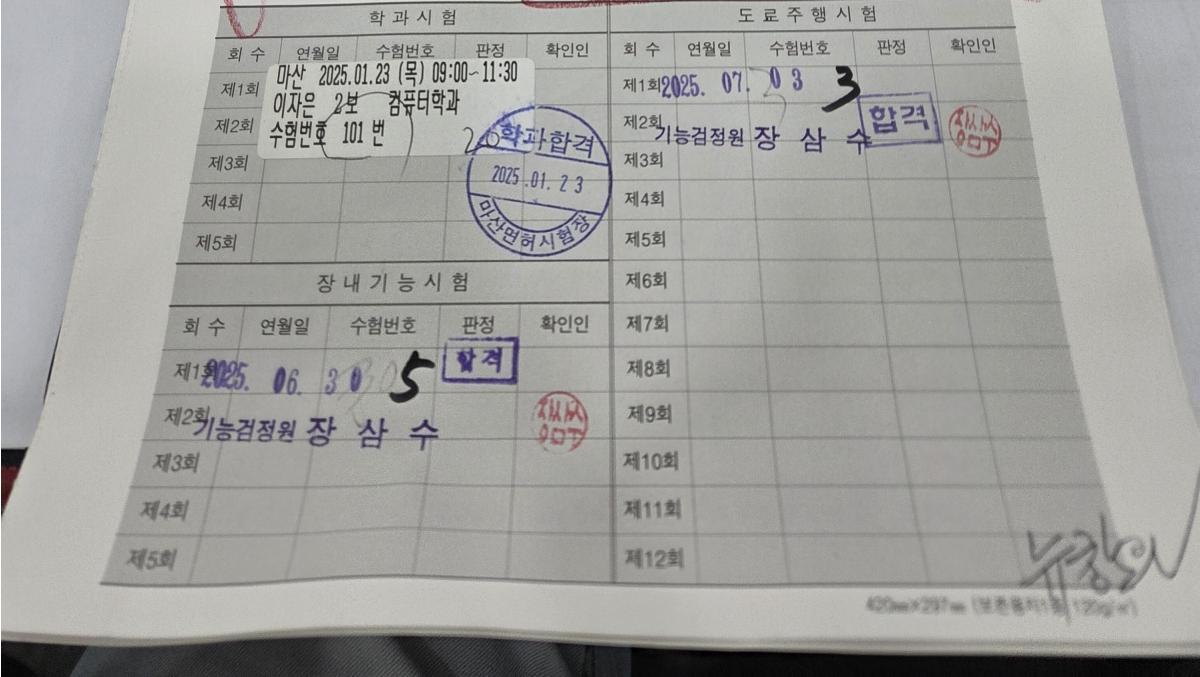 학과시험
회 수 연월일 수험번호 판정 확인인
제1회
마산 2025.01.23 (목) 09:00~11:30
이자은 2보 컴퓨터학과
수험번호 101 번
제2회
학과합격
2025.01.23
마산면허시험장
제3회
제4회
제5회
장내기능시험
회 수 연월일 수험번호 판정 확인인
제1회 2025. 06. 30 5 합격
제2회
기능검정원 장 삼 수
제3회
제4회
제5회
도로주행시험
회 수 연월일 수험번호 판정 확인인
제1회 2025. 07. 03 3
합격
제2회
기능검정원 장 삼 수
제3회
제4회
제5회
제6회
제7회
제8회
제9회
제10회
제11회
제12회
420㎜×297㎜ (보존용지1종 120g/㎡)